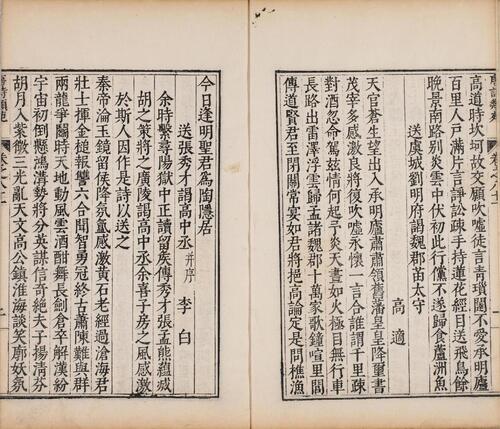 高道時坎坷故交願吹噓徒言青瑣闥不愛承明廬
百里人戶滿片言諍訟疎手持蓮花經目送飛鳥餘
晚景南路別炎雲中伏初此行儻不遂歸食蘆洲魚
送虞城劉明府謁魏郡苗太守
高適
天官蒼生望出入承明廬肅肅領舊藩皇皇降璽書
茂宰多感激良將復吹噓永懷一言合誰謂千里疎
對酒忽命駕茲情何起予炎天晝如火極目無行車
長路出雷澤浮雲歸孟諸魏郡十萬家歌鐘喧里閭
傳道賢君至閉關常宴如君將挹高論定是問樵漁
今日逢明聖君爲陶隱居
送張秀才謁高中丞并序 李白
余時繫尋陽獄中正讀留侯傳秀才張孟熊蘊滅
胡之策將之廣陵謁高中丞余喜子房之風感激
於斯人因作是詩以送之
秦帝淪玉鏡留侯降氛氳感激黃石老經過滄海君
壯士揮金槌報讐六合聞智勇冠終古蕭陳難與群
兩龍爭鬭時天地動風雲酒酣舞長劍倉卒解漢紛
宇宙初倒懸鴻溝勢將分英謀信奇絕夫子揚清芬
胡月入紫微三光亂天文高公鎮淮海談笑廓妖氛